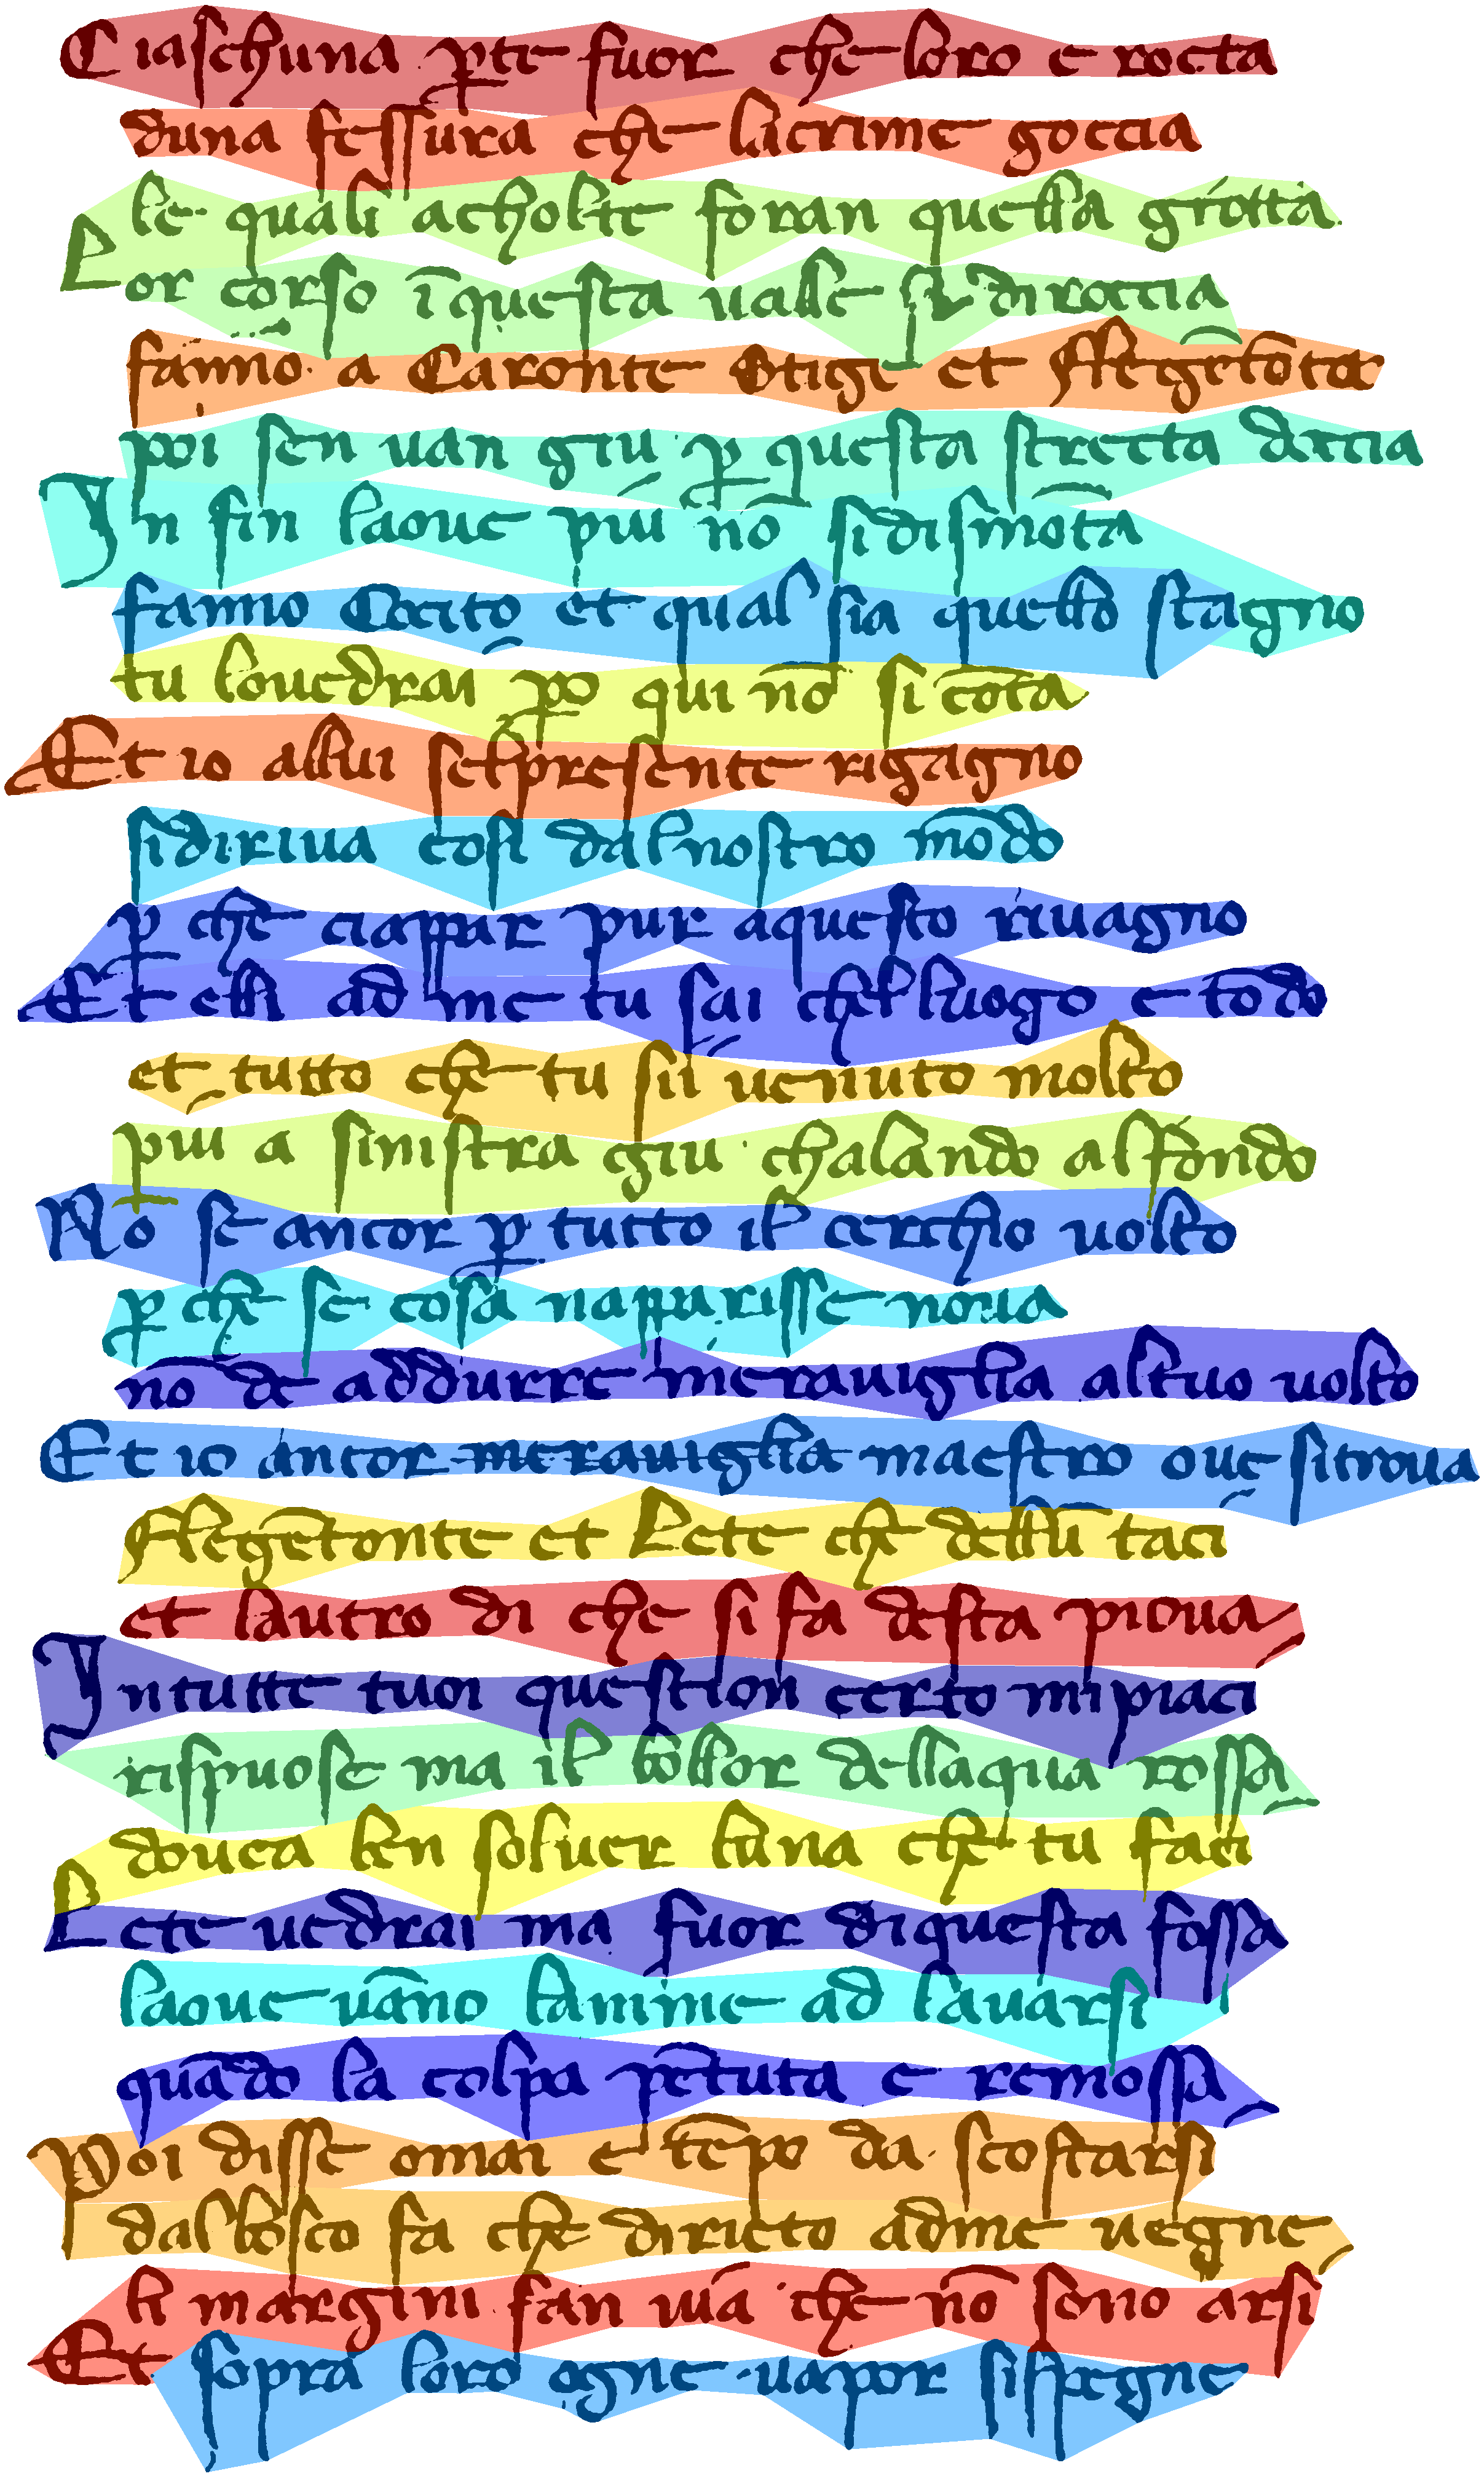 Ciaschuna ꝑte fuor che loro e rocta
duna fessura che lacrime goccia
le quali acholte foran quella grotta
Lor corso ī questa ualle si diroccia
fanno a Caronte Stige et Flegetōta
poi sen uan giu ꝑ questa strecta doccia
In fin laoue piu nō si dismōta
fanno Cocito et qual sia quello stagno
tu louedrai ꝑo qui nō si cōta
Et io allui sel presente rigagno
si diriua cosi dal nostro mōdo
ꝑ che ciappar pur aquesto riuagno
Et elli ad me tu sai chel luogo e tōdo
et tutto che tu sii uenuto molto
piu a sinistra giu chalando al fondo
No se ancor ꝑ tutto il cerchio uolto
ꝑ che se cosa napparisse noua
nō de addurre merauiglia al tuo uolto
Et io ancor merauiglia maestro oue si troua
Flegetonte et Lete che dellū taci
et lautro di che si fa desta pioua
In tutte tuoi question certo mi piaci
rispuose ma il bollor dellaqua rossa
douea ben soluer luna che tu faci
Lete uedrai ma fuor di questa fossa
laoue uāno lanime ad lauarsi
quādo la colpa pētuta e remossa
Poi disse omai e tēpo da scostarsi
dal bosco fa che diricto ad me uegne
li margini fan uia che nō sono arsi
Et sopra loro ogne uapor si spegne